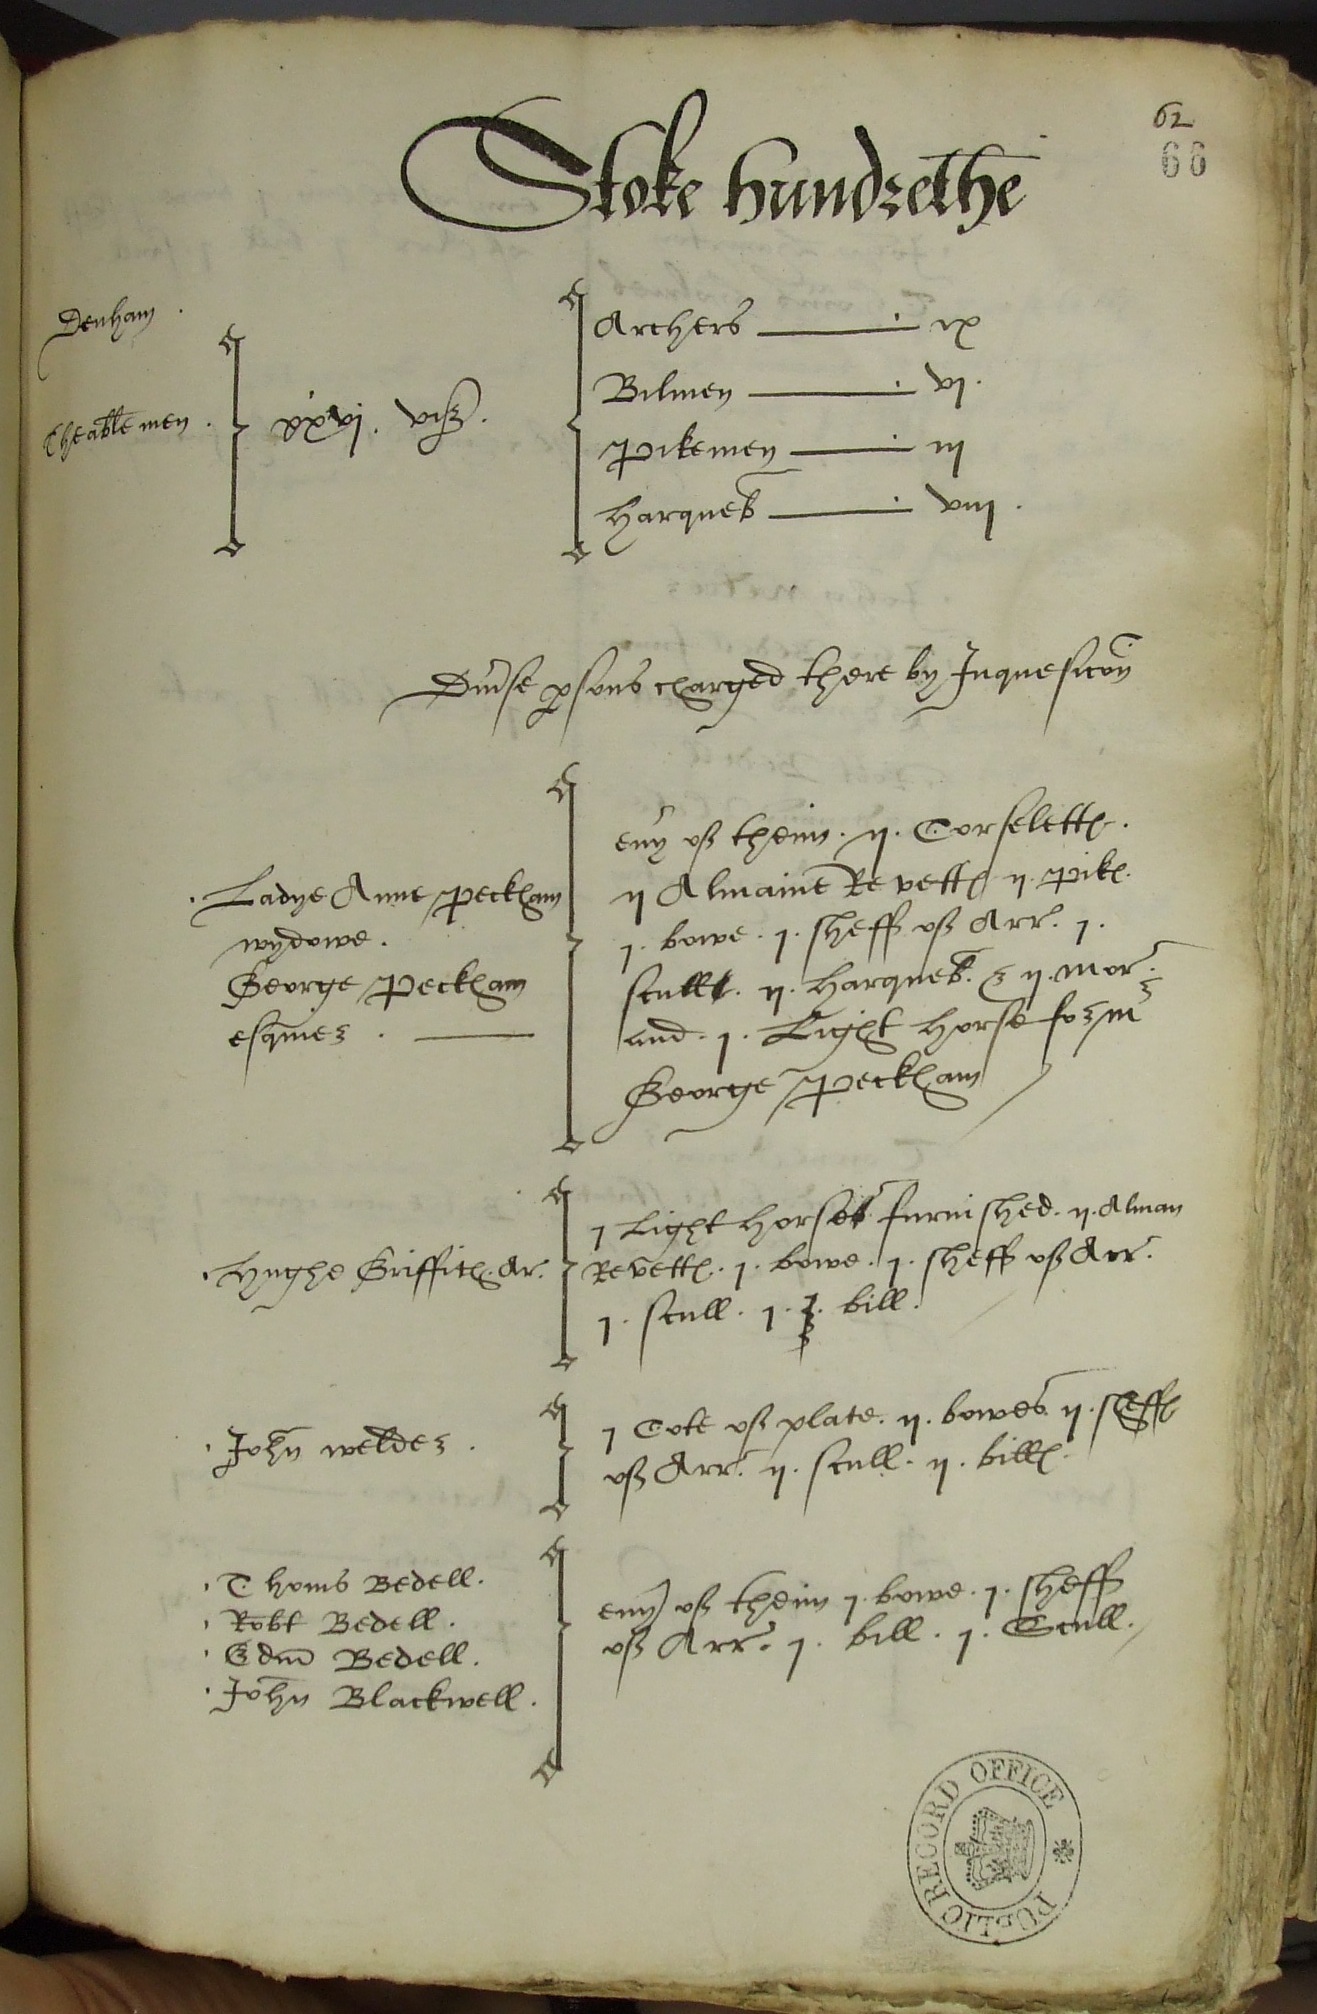 62
66
Stoke hundrethe
Denham .
Theable men .
xxvi . viz .
Archers . ix
Bilmen . vi .
Pikemen . iii
harqueb . viii .
Diuse psons charged there by Inquesicon
. Ladye Anne Peckham
wydowe .
George Peckham
esquier .
euy of theim . ii . Corselett .
ii Almaine Revett ii . pik .
i . bowe . i . sheff of Arr . i .
scull . ii . harqueb . & ii . mor .
and . i . Light horse for mr
George Peckham
. hughe Griffith . Ar .
i Light horse furnished . ii . Alman
Revett . i . bowe . i . sheff of Arr .
i . scull . i . bill .
. John welder .
i Cote of plate . ii . bowes ii . sheff
of Arr . ii . scull . ii . bill .
. Thoms Bedell .
. Robt Bedell .
. Edm Bedell .
. John Blackwell .
euy of theim i . bowe . i . sheff
of Arr . i . bill . i . Scull .
PUBLIC RECORD OFFICE